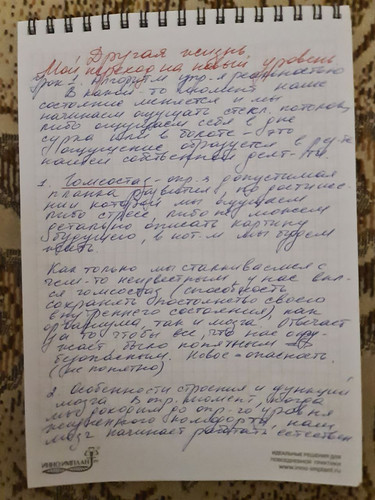 Другая жизнь.
Мой переход на новый уровень
Урок 1. Алгоритм упр-я реальностью
В какой-то момент наше
состояние меняется и мы
начинаем ощущать стекл. потолок,
либо ощущаем себя на дне
сурка или в болоте - это
ощущение, образуется в рез-те
нашей собственной деят-ти.
1. Гомеостаз - опр-я допустимая
планка развития, по достиже-
нии которой мы ощущаем
либо стресс, либо не можем
детально описать картину
будущего, в кот-м мы будем
жить.
Как только мы сталкиваемся с
чем-то неизвестным у нас вкл-
ся гомеостаз (способность
сохранять постоянство своего
внутреннего состояния), как
организма, так и мозга. Отвечает
за то чтобы все, что нас окру-
жает, было понятным
безопасным. Новое - опасность.
(не понятно)
2. Особенности строения и функций
мозга В опр. момент, когда
мы доходим до опр-го уровня
жизненного комфорта, наш
мозг начинает работать естествен
ИННО-ИМПЛАНТ
ИДЕАЛЬНЫЕ РЕШЕНИЯ ДЛЯ
ПОВСЕДНЕВНОЙ ПРАКТИКИ
www.inno-implant.ru